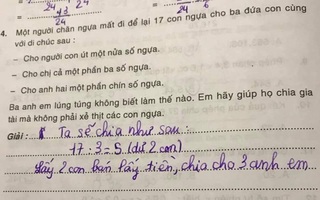 24
24
24
4. Một người chăn ngựa mất đi để lại 17 con ngựa cho ba đứa con cùng
với di chúc sau :
– Cho người con út một nửa số ngựa.
– Cho chị cả một phần ba số ngựa.
– Cho anh hai một phần chín số ngựa.
Ba anh em lúng túng không biết làm thế nào. Em hãy giúp họ chia gia
tài mà không phải xẻ thịt các con ngựa.
Giải : Ta sẽ chia như sau :
17 : 3 = 5 (dư 2 con)
Lấy 2 con bán lấy tiền, chia cho 3 anh em